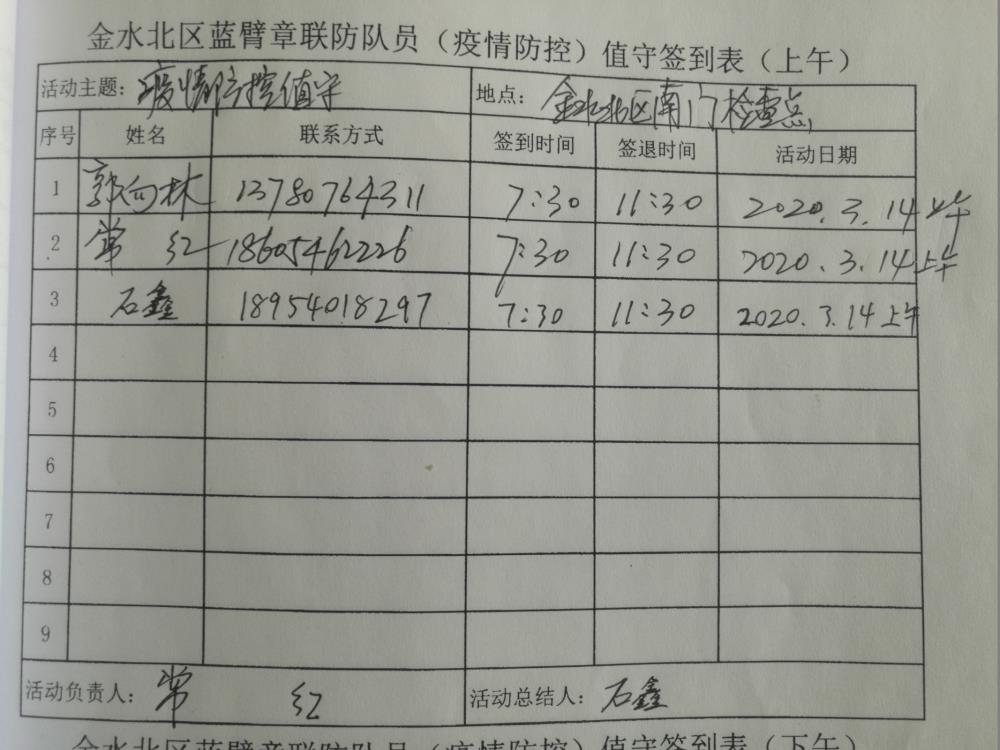 金水北区蓝臂章联防队员（疫情防控）值守签到表（上午）
活动主题：疫情防控值守 地点：金水北区南门检查点
序号 姓名 联系方式 签到时间 签退时间 活动日期
1 郭向林 13780764311 7:30 11:30 2020.3.14上午
2 常红 18605462226 7:30 11:30 2020.3.14上午
3 石鑫 18954018297 7:30 11:30 2020.3.14上午
4
5
6
7
8
9
活动负责人：常红 活动总结人：石鑫
金水北区蓝臂章联防队员（疫情防控）值守签到表（下午）